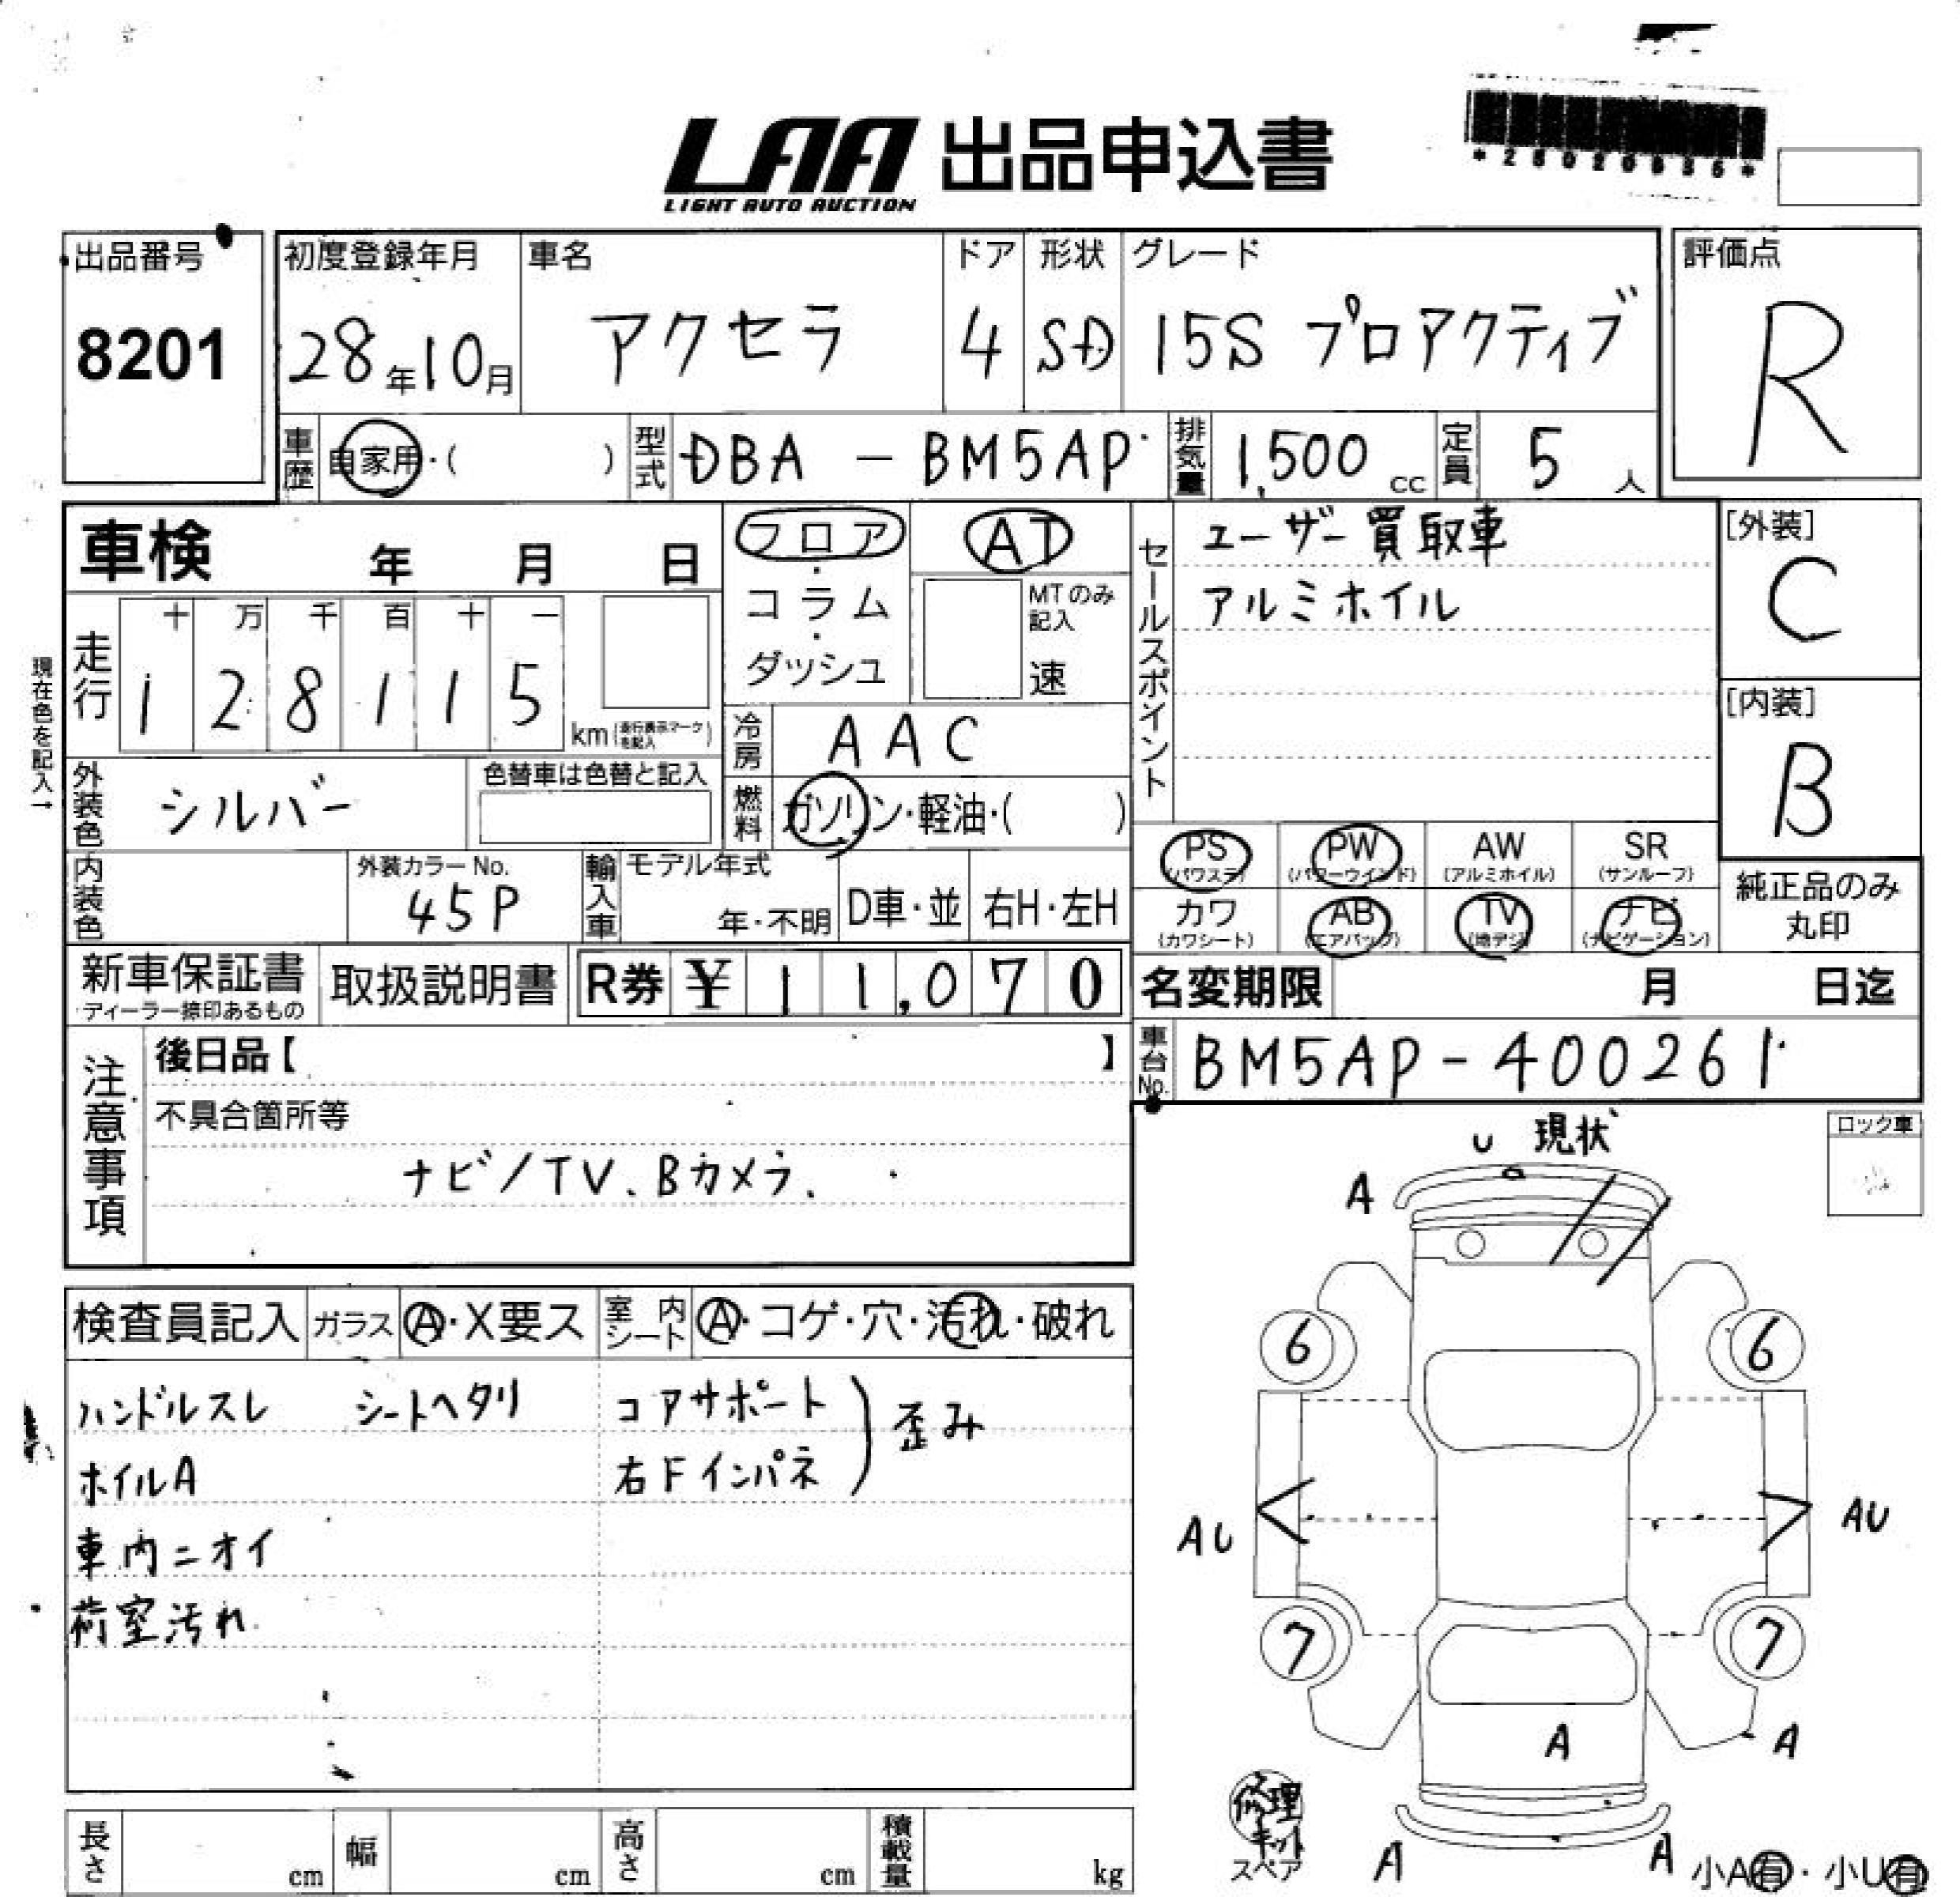 LAA 出品申込書
LIGHT AUTO AUCTION
*28020836*
出品番号
8201
初度登録年月
28年10月
車名
アクセラ
ドア
4
形状
SD
グレード
15S プロアクティブ
評価点
R
車歴 自家用・( )
型式 DBA - BM5AP
排気量 1,500 cc
定員 5 人
車検 年 月 日
フロア・コラム・ダッシュ
AT
MTのみ記入
速
セールスポイント
ユーザー買取車
アルミホイル
[外装]
C
[内装]
B
現在色を記入→
走行
十 万 千 百 十 一
1 2 8 1 1 5
km (走行表示マークを記入)
冷房 AAC
外装色 シルバー
色替車は色替と記入
燃料 ガソリン・軽油・( )
PS (パワステ)
PW (パワーウインド)
AW (アルミホイル)
SR (サンルーフ)
カワ (カワシート)
AB (エアバッグ)
TV (地デジ)
ナビ (ナビゲーション)
純正品のみ
丸印
内装色
外装カラー No.
45P
輸入車
モデル年式
年・不明
D車・並
右H・左H
新車保証書
ディーラー捺印あるもの
取扱説明書
R券 ¥ 11,070
名変期限 月 日迄
車台No. BM5AP-400261
注意事項
後日品【 】
不具合箇所等
ナビ/TV、Bカメラ、
U 現状
A
ロック車
検査員記入
ガラス A・X要ス
室内シート A・コゲ・穴・汚れ・破れ
ハンドルスレ シートヘタリ
コアサポート
右Fインパネ
) 歪み
ホイルA
車内ニオイ
荷室汚れ
6 6
AU AU
7 7
A A
修理
キット
スペア
A A
小A有・小U有
長さ cm
幅 cm
高さ cm
積載量 kg